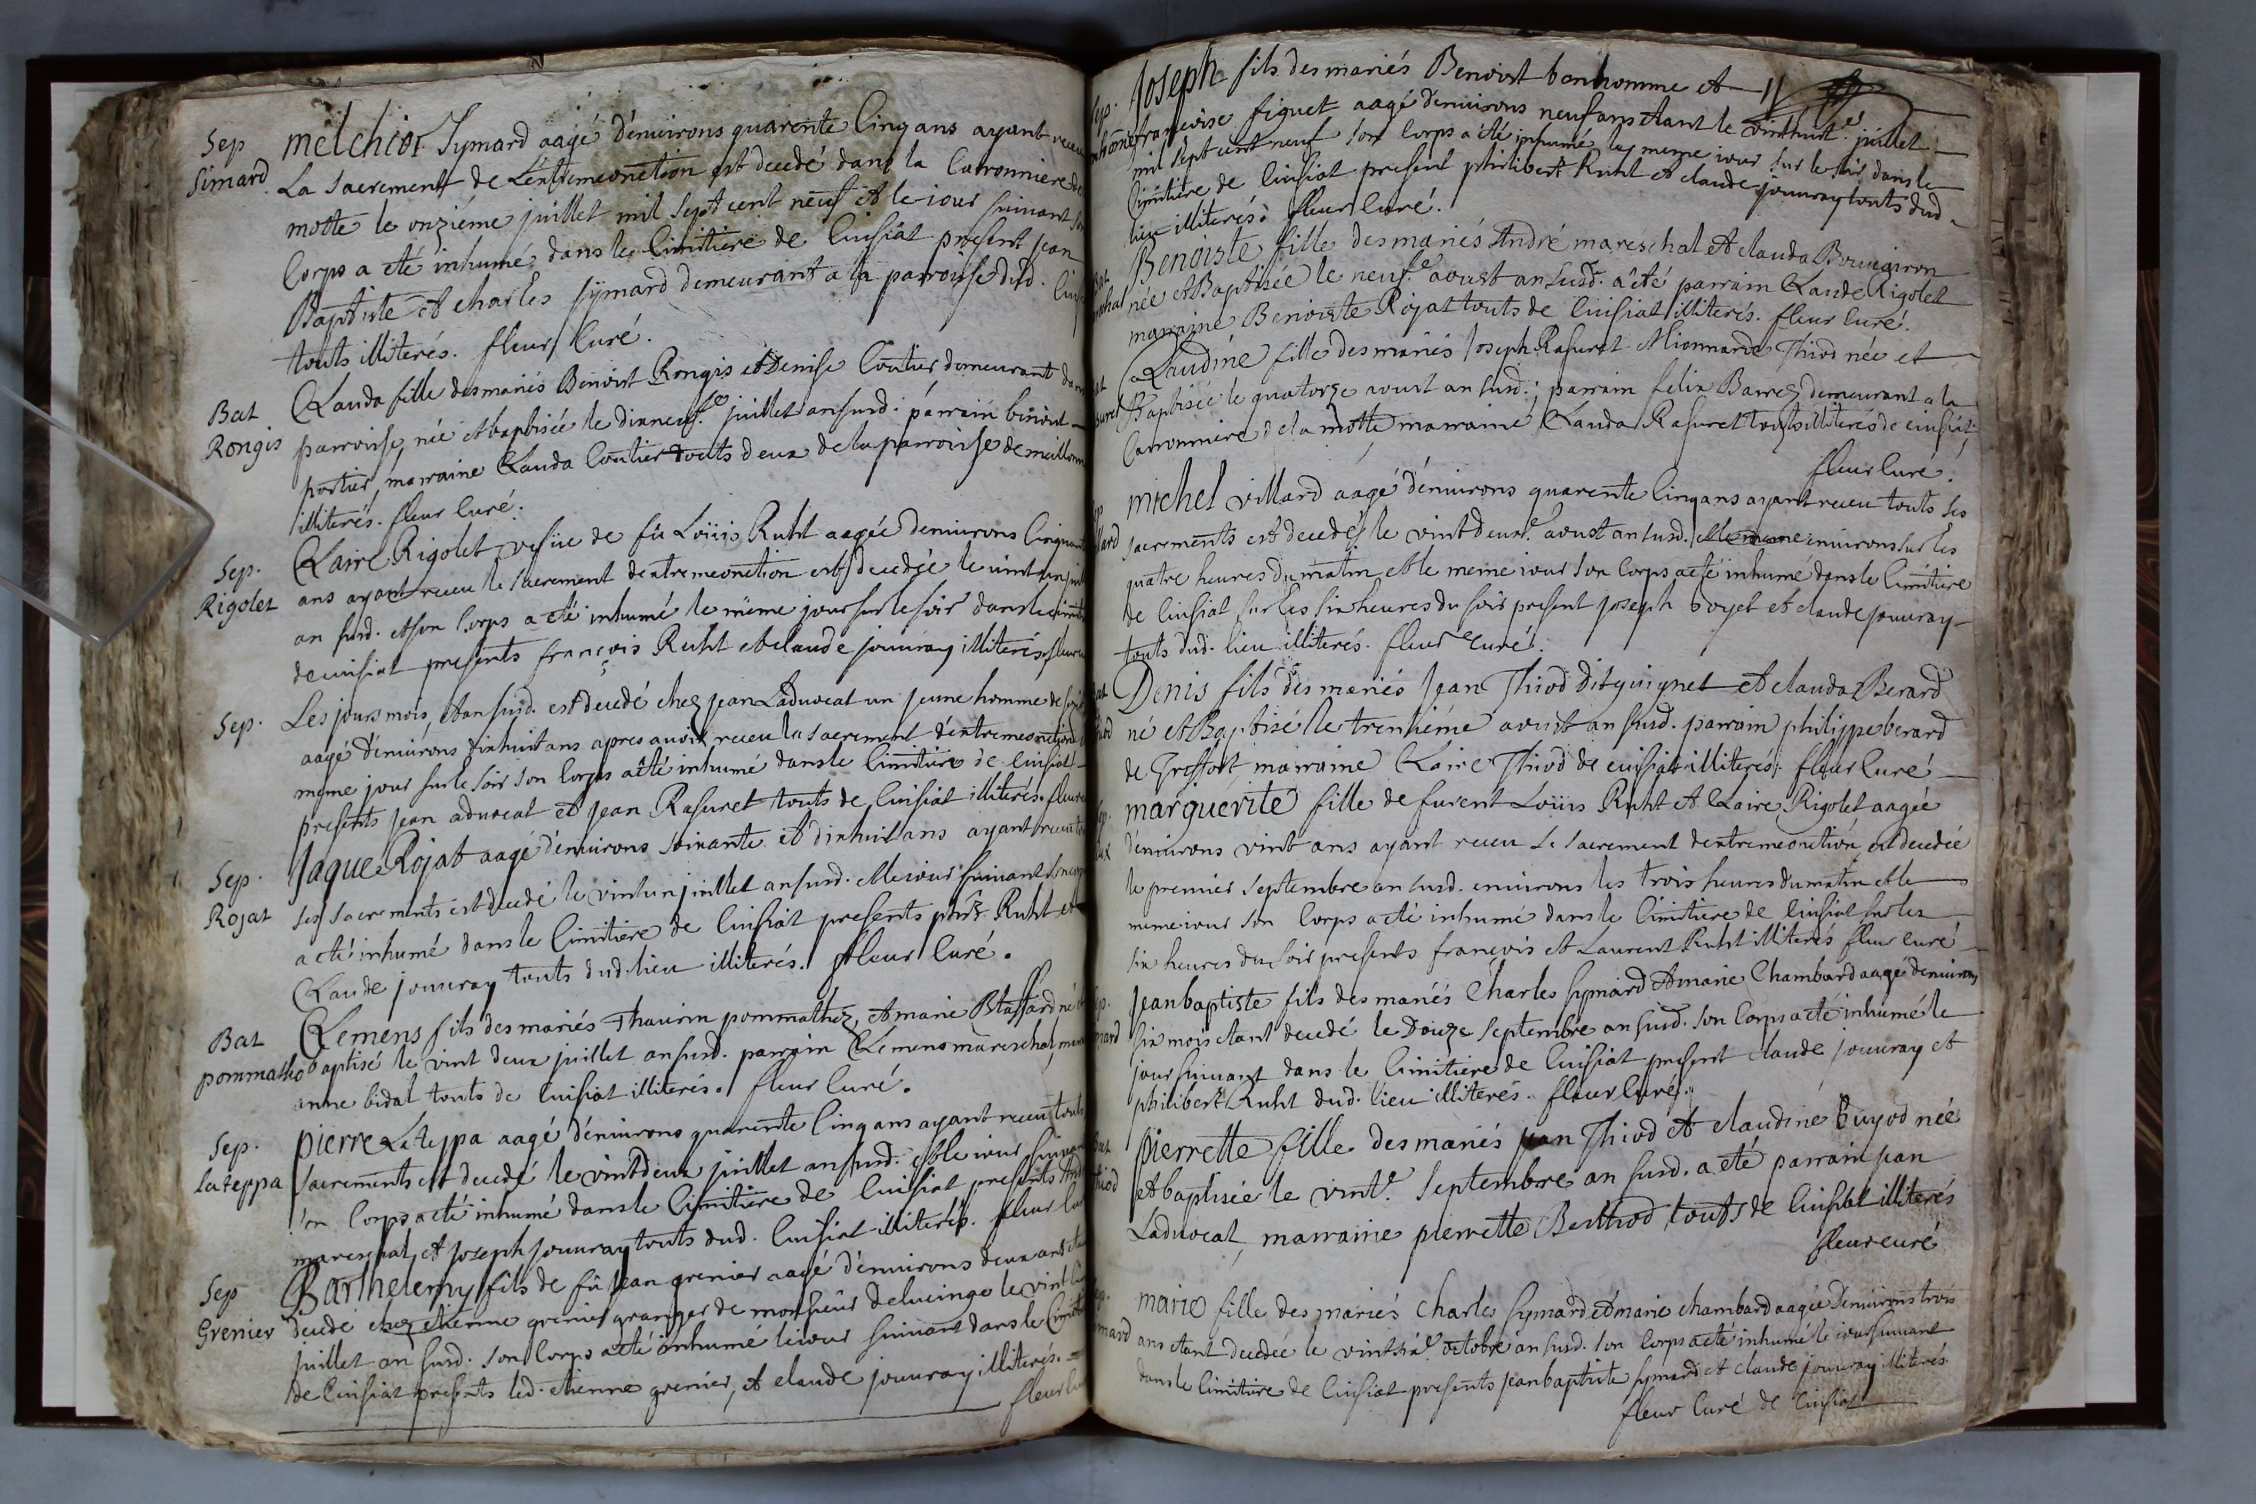 Sep
Simard
melchior Symard aagé d'enuirons quarente Cinq ans ayant receu
La sacrement de L'extremeonction est decedé dans la Carronniere de
motte le onziéme juillet mil sept cent neuf et le iour suiuant son
Corps a eté inhumé dans le Cimitiere de Cuisiat present jean
Baptiste et charles symard demeurant a la parroisse dud. Cuis
touts illiterés. fleur Curé.
Bat
Rongis
Clauda fille des mariés Benoist Rongis et Denise Coutier demeurant dans
parroisse, née et baptisée le dixneuf.e juillet an susd. parrain benoist
portier, marraine Clauda Coutier touts deux de la parroisse de meillonn
illiterés. fleur Curé.
Sep.
Rigolet
Claire Rigolet vefue de fû Loüis Ruht aagée denuirons Cinquante
ans ayant receu le sacrement dextremeonction est decedée le vint
an susd. et son Corps a eté inhumé le même jour sur le soir dans le cimiti
de cuisiat presents françois Ruht et claude jouuray illiterés. fleur
Sep.
Les jours mois, et an susd. est decedé chez jean Laduocat un jeune homme de
aagé d'enuirons dixhuit ans apres auoir receu la sacrement d'extremeonction
meme jour sur le soir son Corps a êté inhumé dans le Cimitiere de Cuisiat
presents jean aduocat et jean Rasuret touts de Cuisiat illiterés. fleur
Sep.
Rojat
Jaque Rojat aagé d'enuirons soixante et dixhuit ans ayant receu
ses sacrements est decedé le vintun juillet an susd. et le iour suiuant son corps
a eté inhumé dans le Cimitiere de Cuisiat presents philb. Ruht et
Claude jouuray touts dud. lieu illiterés. fleur Curé.
Bat
pommatho
Clemens fils des mariés Thaurin pommathoz, et marie Blaffard né
baptisé le vint deux juillet an susd. parrain Clemens mareschal
anne bidal touts de Cuisiat illiterés. fleur Curé.
Sep.
Lateppa
pierre Lateppa aagé d'enuirons quarente Cinq ans ayant receu touts
sacrements est decedé le vintdeux juillet an susd. et le iour suiuan
son Corps a eté inhumé dans le Cimitiere de Cuisiat presents
mareschal, et joseph jouuray touts dud. Cuisiat illiterés. fleur Cu
Sep
Grenier
Barthelemy fils de fû jean grenier aagé d'enuirons deux ans
decedé chez etienne grenier granger de monsieur Delucinge le vint
juillet an susd. son Corps a eté inhumé le iour suiuant dans le Cimiti
de Cuisiat presents led. etienne grenier, et claude jouuray illiterés.
fleur Cu
Joseph fils des mariés Benoist bonhomme et
françoise figuet aagé denuirons neuf ans etant le vinthuit.e juillet
mil sept cent neuf son Corps a eté inhumé le meme iour sur le soir dans le
Cimitiere de Cuisiat present philibert Ruht et claude jouuray touts dud
lieu illiterés. fleur Curé.
Benoiste fille des mariés André mareschal et clauda Bouuairon
née et Baptisée le neuf.e aoust an susd. a êté parrain Claude Rigolet
marraine Benoiste Rojat touts de Cuisiat illiterés. fleur Curé.
Claudine fille des mariés Joseph Rasuret et Lionnarde Thiod née et
Baptisée le quatorze aoust an susd.; parrain felix Barrez demeurant a la
Carronniere de la motte marraine Clauda Rasuret touts illiterés de cuisiat
fleur Curé.
michel villard aagé d'enuirons quarente Cinq ans ayant receu touts ses
sacrements est decedé le vintdeux.e aoust an susd. enuirons sur les
quatre heures du matin et le meme iour son Corps a eté inhumé dans le Cimitiere
de Cuisiat sur les six heures du soir present joseph goyet et claude jouuray
touts dud. lieu illiterés. fleur Curé.
Denis fils des mariés Jean Thiod dit guignet et clauda Berard
né et Baptisé le trentiéme aoust an susd. parrain philippe berard
de Treffort, marraine Claire Thiod de cuisiat illiterés. fleur Curé
marguerite fille de furent Loüis Ruht et Claire Rigolet aagée
d'enuirons vint ans ayant receu le sacrement dextremeonction est decedée
le premier septembre an susd. enuirons les trois heures du matin et le
meme iour son Corps a eté inhumé dans le Cimitiere de Cuisiat sur les
six heures du soir presents françois et Laurent Ruht illiterés fleur Curé
jeanbaptiste fils des mariés Charles Symard et marie Chambard aagé denuirons
six mois etant decedé le Douze septembre an susd. son Corps a eté inhumé le
jour suiuant dans le Cimitiere de Cuisiat present claude jouuray et
philibert Ruht dud. lieu illiterés. fleur Curé.
pierrette fille des mariés jean Thiod et claudine Guyod née
et baptisée le vint.e septembre an susd. a eté parrain jean
Laduocat, marraine pierrette Berthod touts de Cuisiat illiterés
fleur curé
marie fille des mariés charles symard et marie chambard aagée denuirons trois
ans etant decedée le vintsix.e octobre an susd. son Corps a eté inhumé le iour suiuant
dans le Cimitiere de Cuisiat presents jeanbaptiste symard et claude jouuray illiterés
fleur Curé de Cuisiat